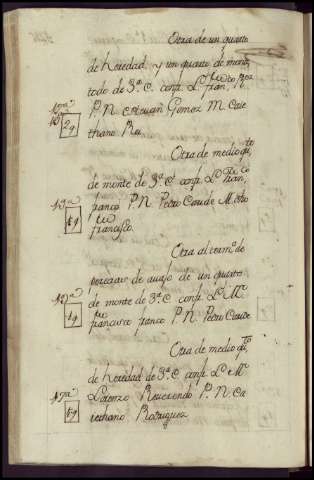 Otra de un quarto
de heredad y un quarto de monte
todo de 3ª C. conf. L. Fran.co R.
P. N. Estevan Gomez M. Caie
thano Ro
2q
Otra de medio q.to
de monte de 3ª C. conf. L. Fran.co
franco P. N. Pedro Conde M. otro
francisco
Otra al term.º de
de avajo de un quarto
de monte de 3ª C. conf. L. M.
francisco franco P. N. Pedro Conde
1q
Otra de medio q.to
de heredad de 3ª C. conf. L. M.
Lorenzo Reverendo P. N. Ca
iethano Rodriguez